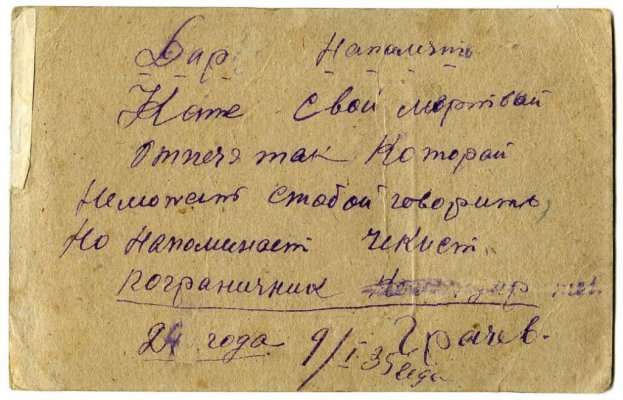 Дар Напомять
Кате Свой мертвый
Отпечаток Которай
Неможеть стобой говорить,
Но Напоминает чекист
пограничник
24 года 9/I 35 года Грачев.